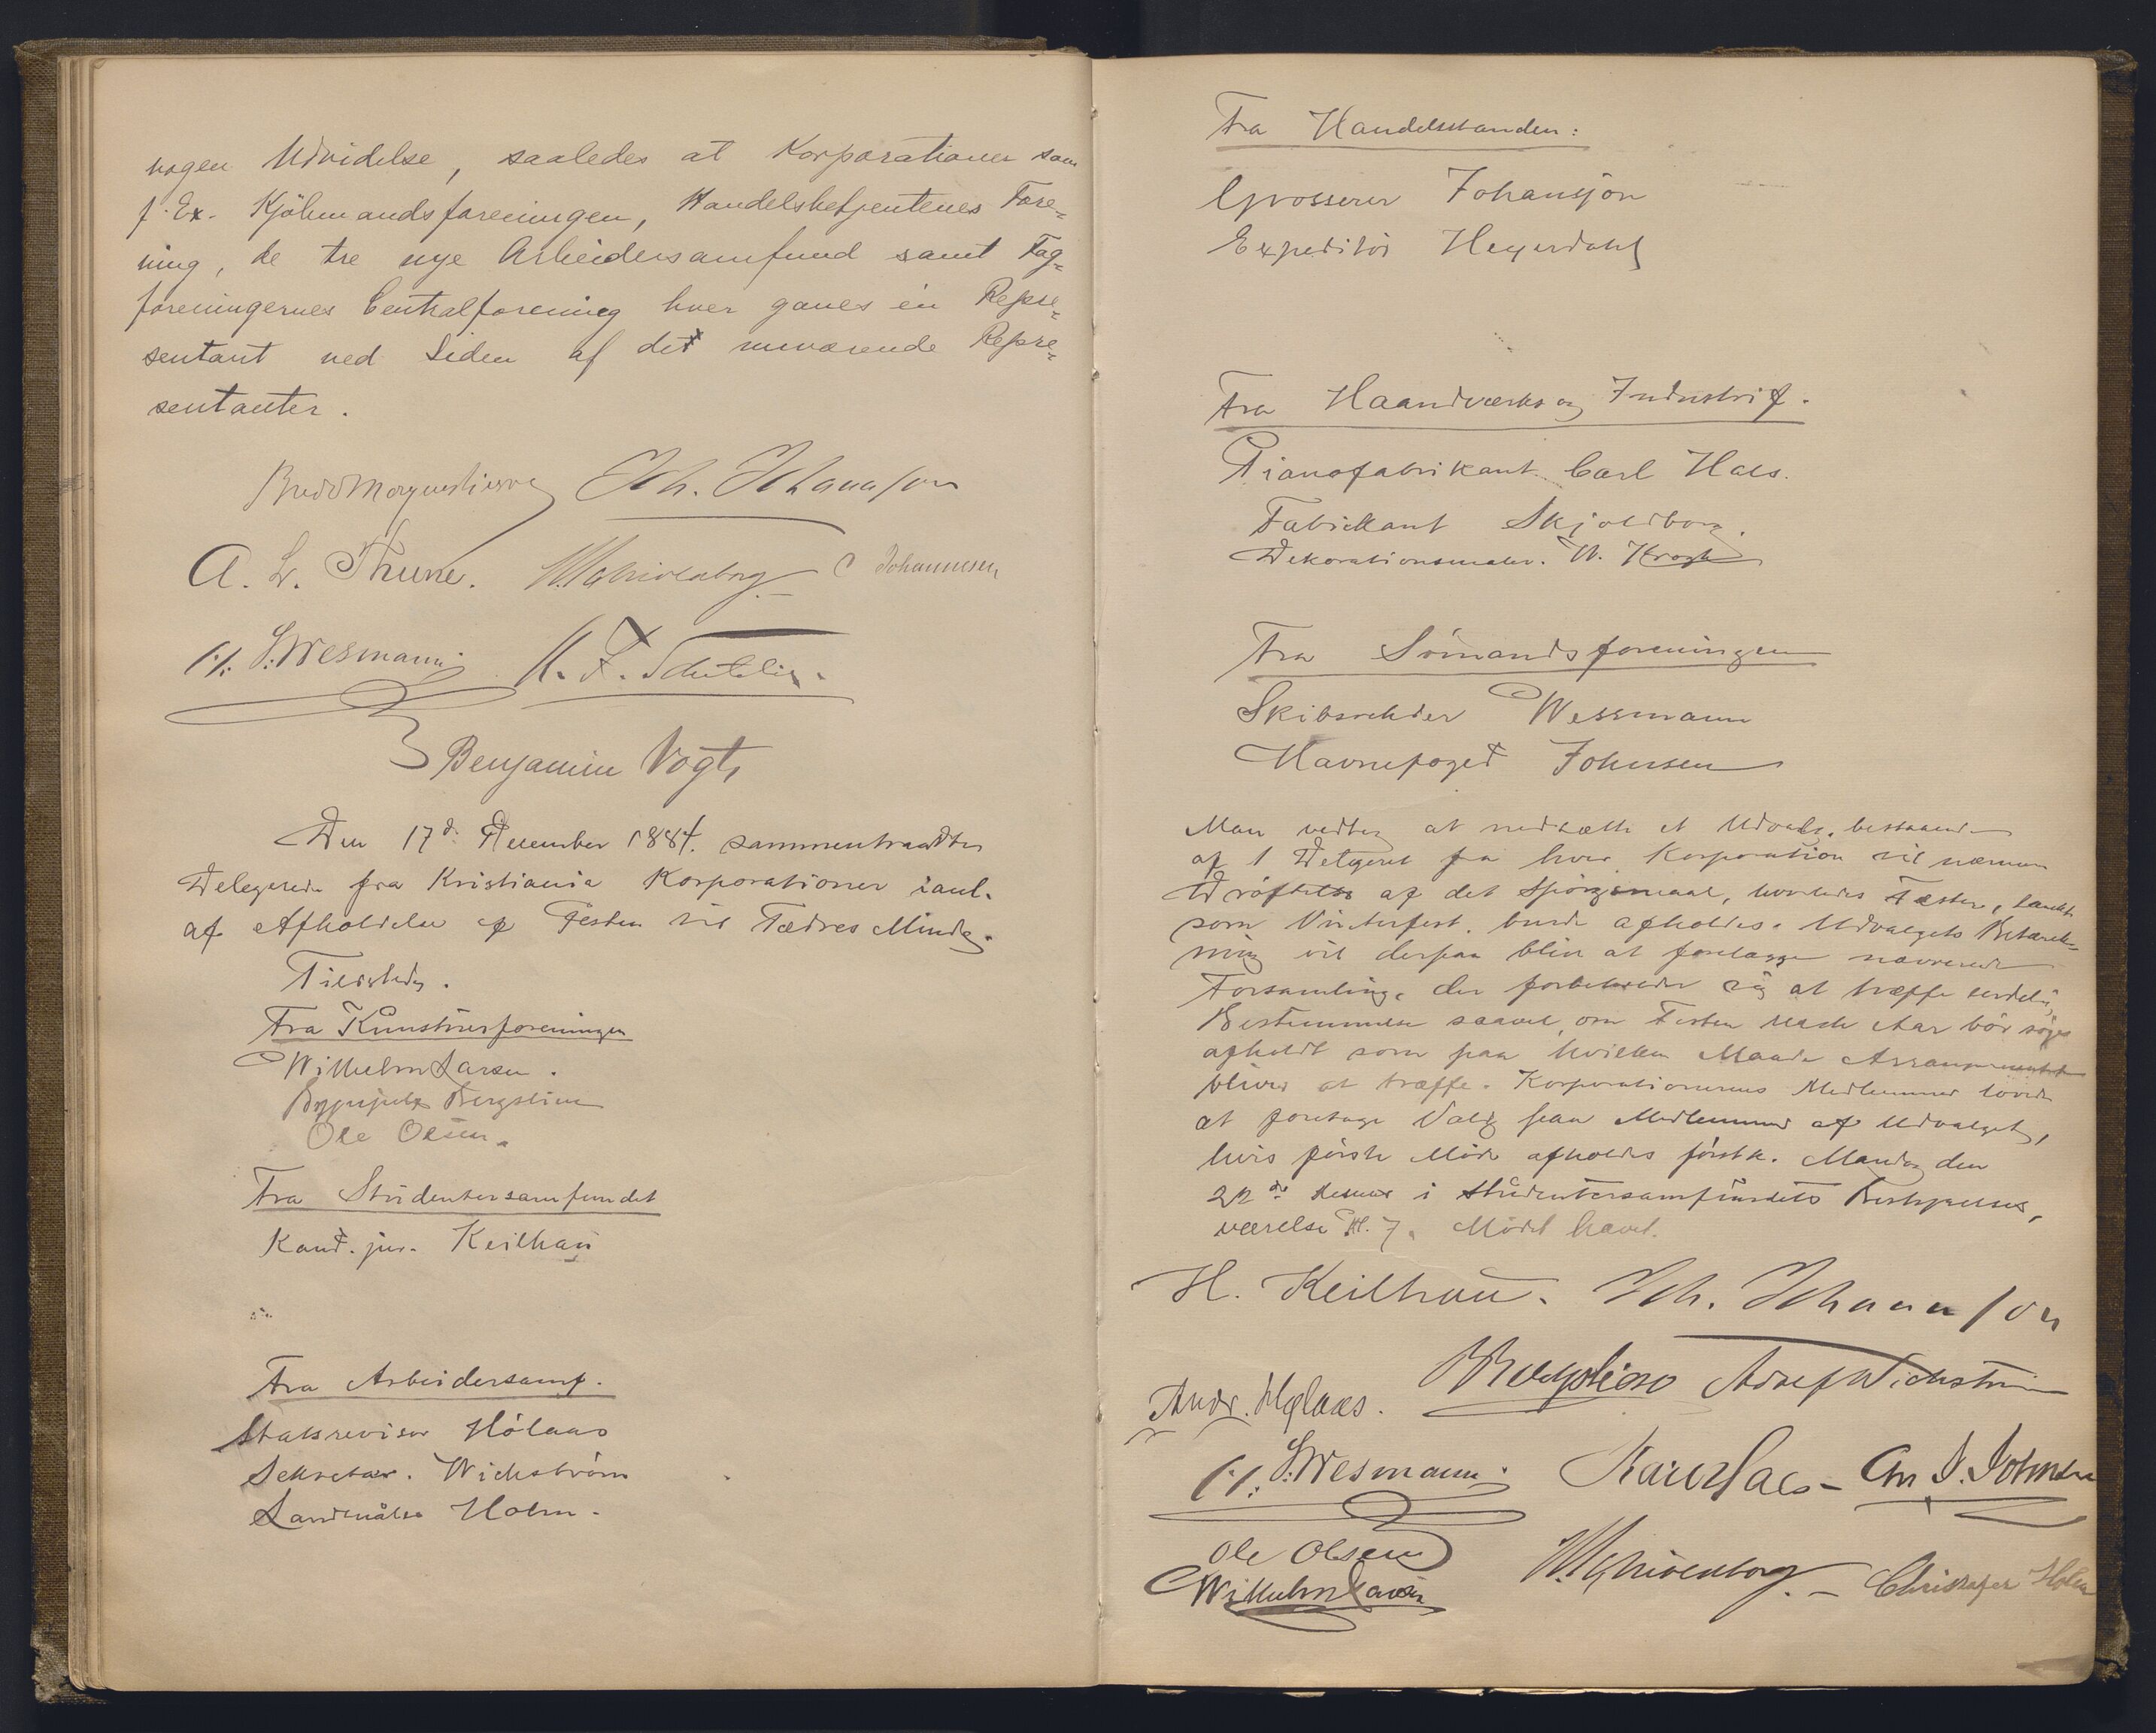 nogen Udvidelse, saaledes at Korporationer som
f. Ex. Kjöbmandsforeningen, Handelsbetjentenes Fore=
ning, de tre nye Arbeidersamfund samt Fag=
foreningernes Centralforening hver gaves en Repræ=
sentant ved Siden af det nuværende Repræ=
sentanter.
Bredo Morgenstierne Joh. Johannson
A. L. Thune. C Johannesen
H. S. Wesmann
Benjamin Vogt,
Den 17d. December 1884. sammentraadte
Delegerede fra Kristiania Korporationer i anl.
af Afholdelse af Festen til Fædres Minde.
Tilstede.
Fra Kunstnerforeningen
Wilhelm Larsen.
Bergslien
Ole Olsen.
Fra Studentersamfundet
Kand. jur. Keilhau
Fra Arbeidersamf.
Statsrevisor Hölaas
Sekretær. Wickström
Landmåler Holm.
Fra Handelsstanden:
Grosserer Johansson
Expeditör Heyerdahl
Fra Haandværks og Industrif.
Pianofabrikant Carl Hals.
Fabrikant Skjoldborg.
Dekorationsmaler. W. Krogh
Fra Sömandsforeningen
Skibsreder Wessmann
Havnefoged Johnsen
Man vedtog at nedsætte et Udvalg, bestaaende
af 1 Delegeret fra hver Korporation til nærmere
Dröftelse af det Spörgsmaal, hvorledes Festen, tænkt
som Vinterfest, burde afholdes. Udvalgets Betænk=
ning vil derpaa blive at forelægge nærværende
Forsamling, der forbeholder sig at træffe endelig
Bestemmelse saavel om Festen dette Aar bör söges
afholdt som paa hvilken Maade Arrangementet
bliver at træffe. Korporationernes Medlemmer lovede
at foretage Valg paa Medlemmer af Udvalget,
hvis förste Möde afholdes förstk. Mandag den
22de i Studentersamfundets Bestyrelses,
værelse Kl. 7. Mödet hævet.
H. Keilhau. Joh. Johannson
Andr. Hølaas. Bergslien Adolf Wickström
H. S. Wesmann Karl Hals - Chr. S. Johnsen
Ole Olsen
Wilhelm Larsen Christofer Holm